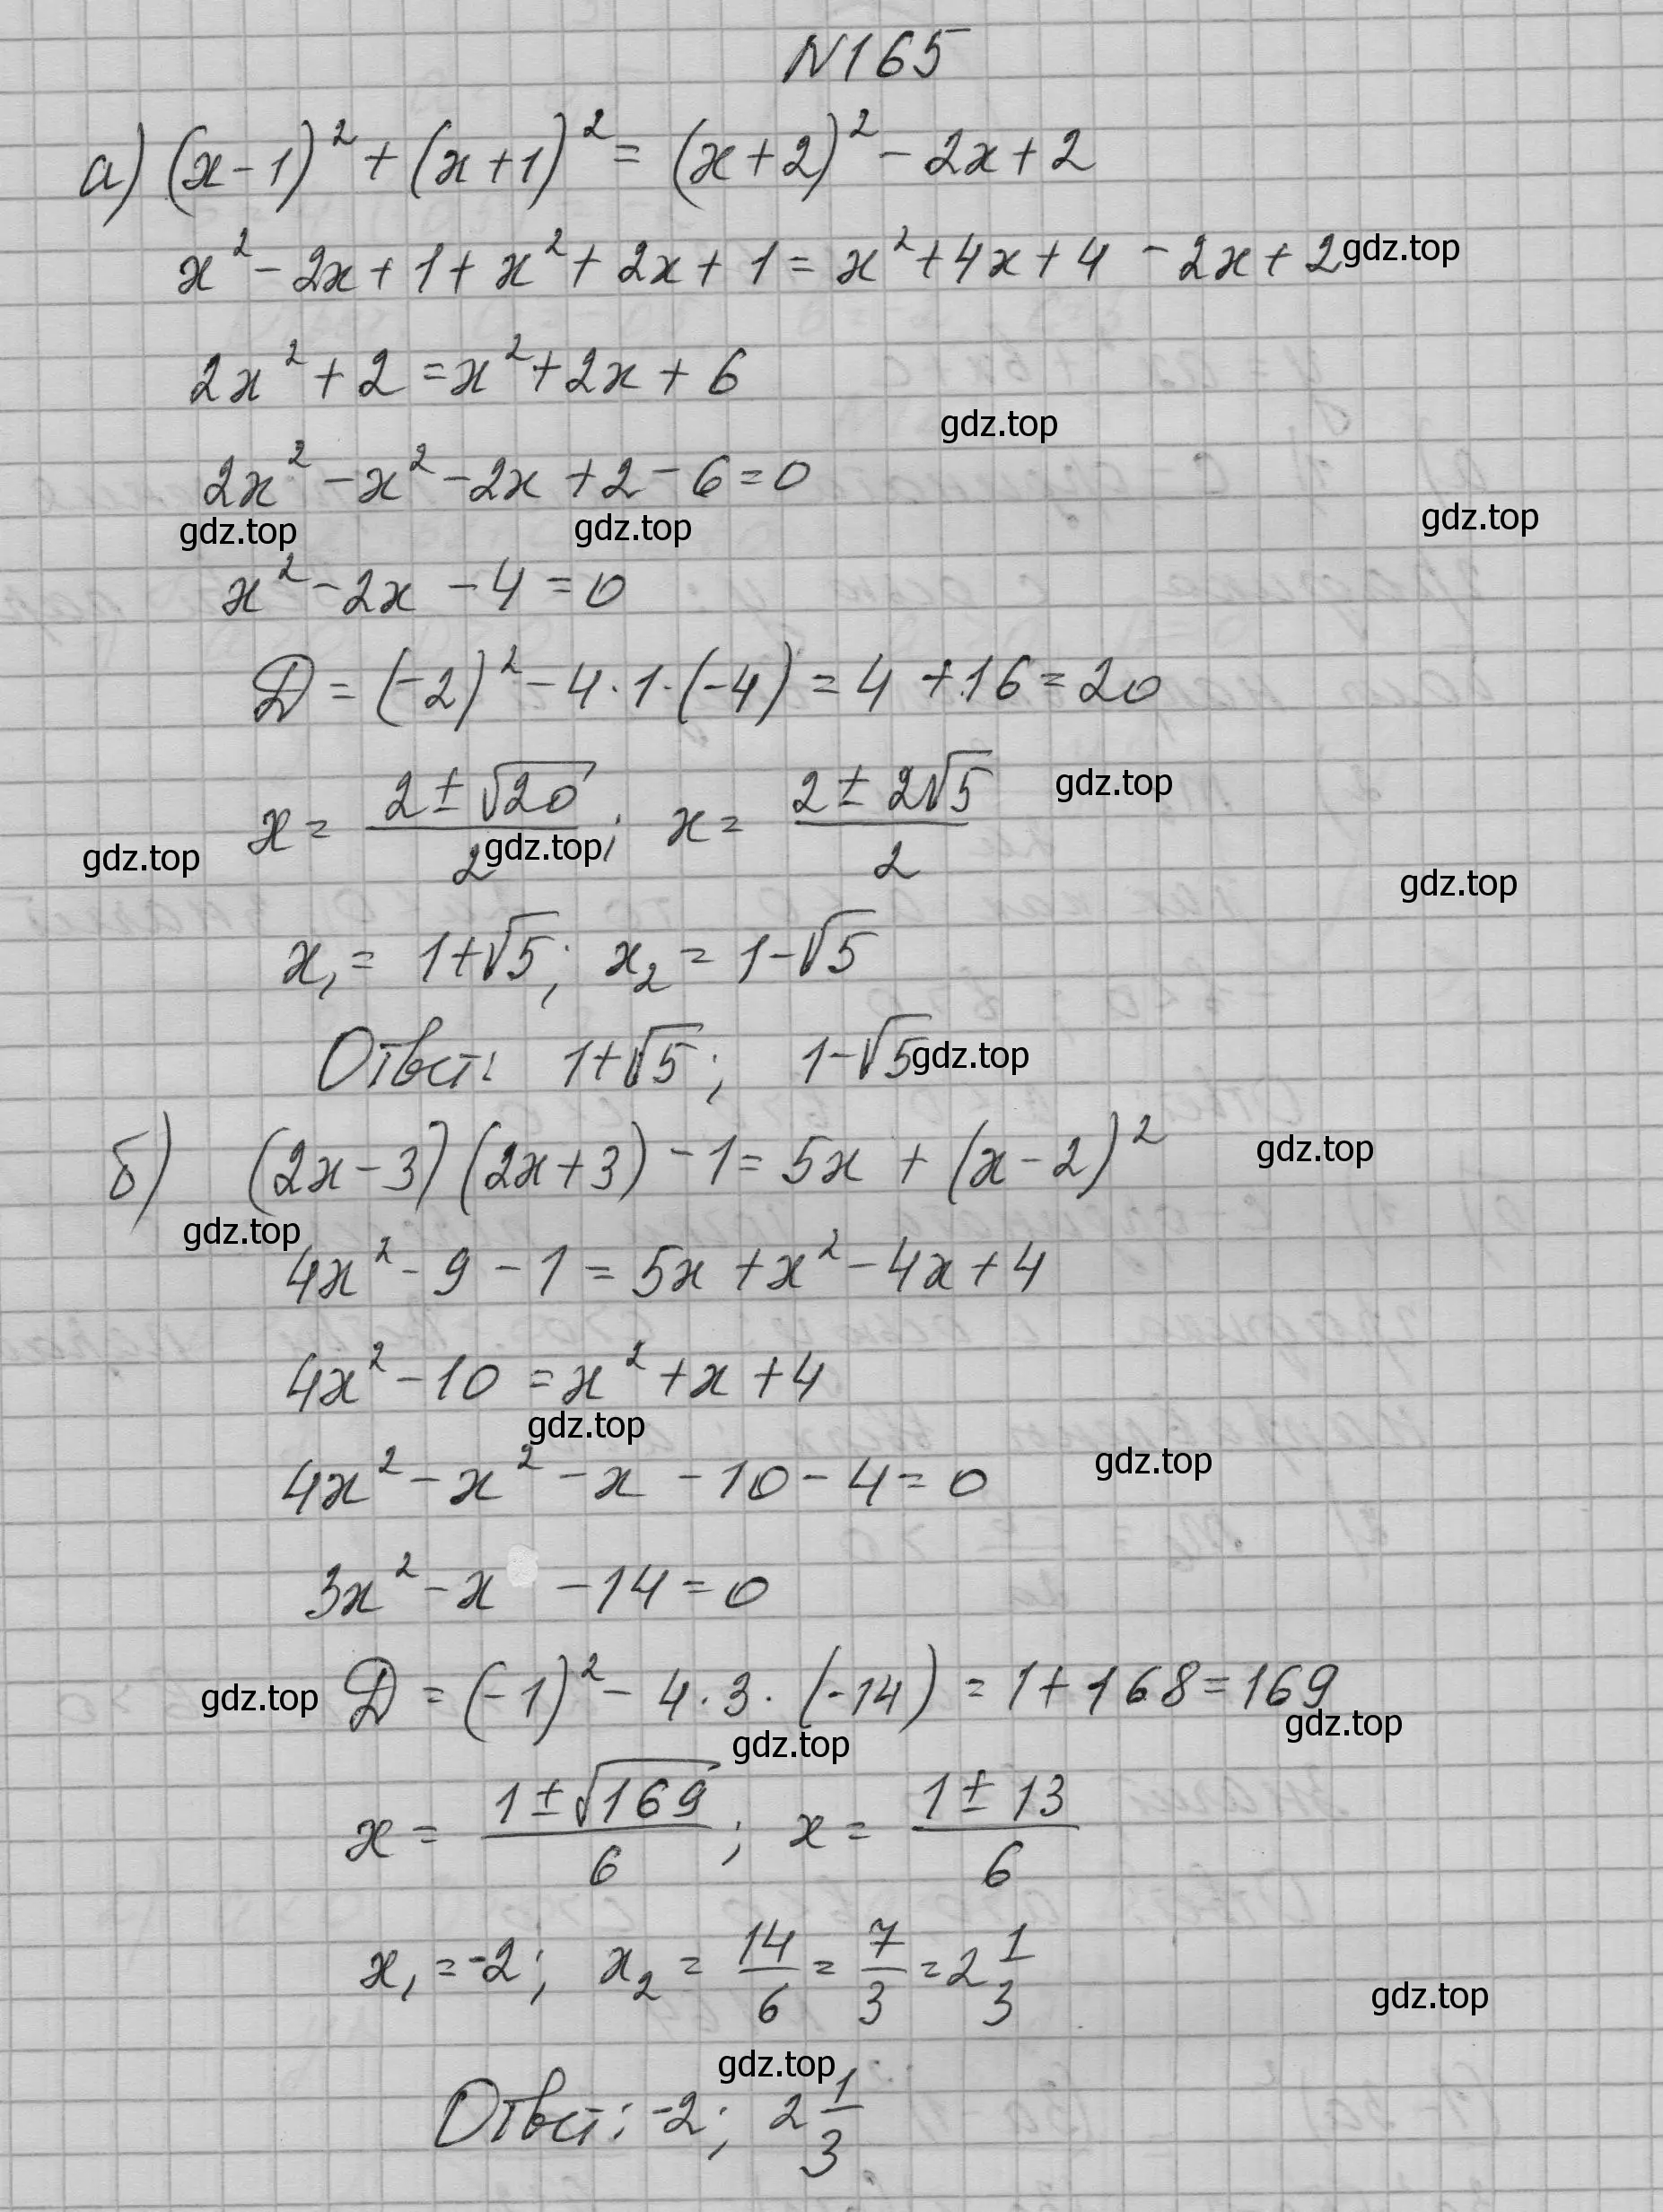 N165
а) (x-1)² + (x+1)² = (x+2)² - 2x + 2
x² - 2x + 1 + x² + 2x + 1 = x² + 4x + 4 - 2x + 2 gdz.top
2x² + 2 = x² + 2x + 6
gdz.top
2x² - x² - 2x + 2 - 6 = 0
gdz.top gdz.top gdz.top
x² - 2x - 4 = 0
D = (-2)² - 4·1·(-4) = 4 + 16 = 20
x = (2 ± √20)/2; x = (2 ± 2√5)/2 gdz.top
gdz.top gdz.top gdz.top
x₁ = 1+√5; x₂ = 1-√5
Ответ: 1+√5; 1-√5 gdz.top
б) (2x-3)(2x+3) - 1 = 5x + (x-2)² gdz.top
gdz.top
4x² - 9 - 1 = 5x + x² - 4x + 4
4x² - 10 = x² + x + 4
gdz.top
4x² - x² - x - 10 - 4 = 0 gdz.top
3x² - x - 14 = 0
gdz.top D = (-1)² - 4·3·(-14) = 1 + 168 = 169
gdz.top gdz.top
x = (1 ± √169)/6; x = (1 ± 13)/6
x₁ = -2; x₂ = 14/6 = 7/3 = 2 1/3
gdz.top
gdz.top
Ответ: -2; 2 1/3